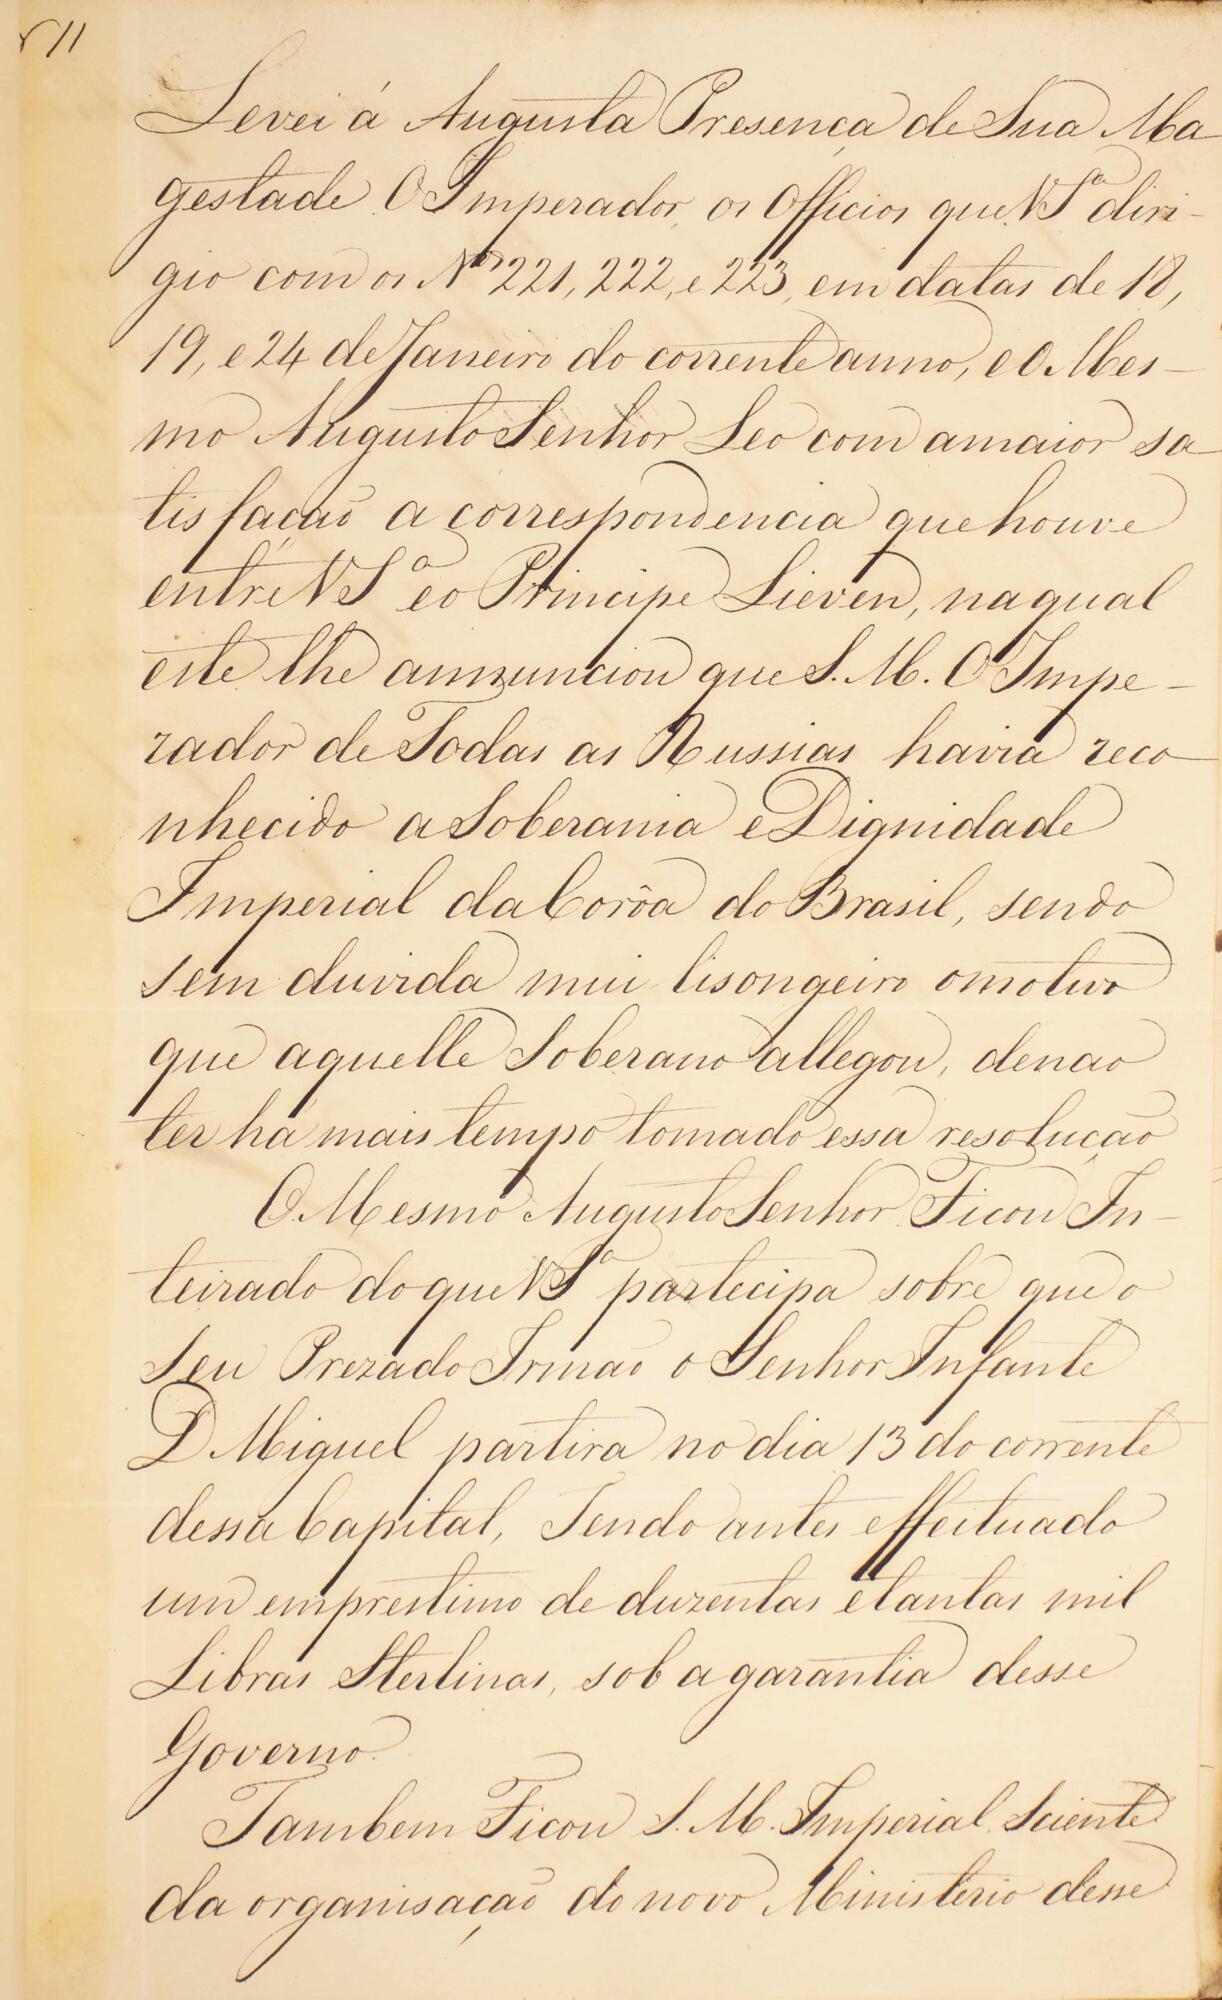 11
Levei á Augusta Presença de Sua Ma
gestade O Imperador, os Officios que VSª diri-
gio com os Nos 221, 222, e 223, em datas de 18,
19, e 24 de Janeiro do corrente anno, e O Mes-
mo Augusto Senhor Leo com a maior sa
tisfação a correspondencia que houve
entre VSª e o Principe Lieven, na qual
este lhe annunciou que S. M. O Impe-
rador de Todas as Russias havia reco
nhecido a Soberania e Dignidade
Imperial da Corôa do Brasil, sendo
sem duvida mui lisongeiro o motivo
que aquelle Soberano allegou, de nao
ter ha mais tempo tomado essa resolução
O Mesmo Augusto Senhor Ficou In-
teirado do que VSª partecipa sobre que o
Seu Prezado Irmao o Senhor Infante
D Miguel partira no dia 13 do corrente
dessa Capital, Tendo antes effeituado
um emprestimo de duzentas e tantas mil
Libras Sterlinas, sob a garantia desse
Governo.
Tambem Ficou S. M. Imperial Sciente
da organisação do novo Ministerio desse